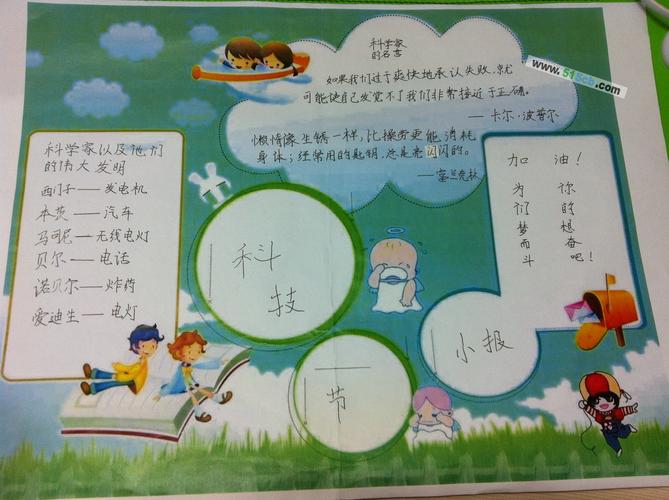 科学家
的名言
如果我们过于爽快地承认失败,就
可能使自己发觉不了我们非常接近于正确。
——卡尔·波普尔
懒惰像生锈一样,比操劳更能消耗
身体;经常用的匙钥,总是亮闪闪的。
——富兰克林
www.51Scb.com
科学家以及他们
的伟大发明
西门子——发电机
本茨——汽车
马可尼——无线电灯
贝尔——电话
诺贝尔——炸药
爱迪生——电灯
加油!
为你
们的
梦想
而奋
斗吧!
科技
节
小报